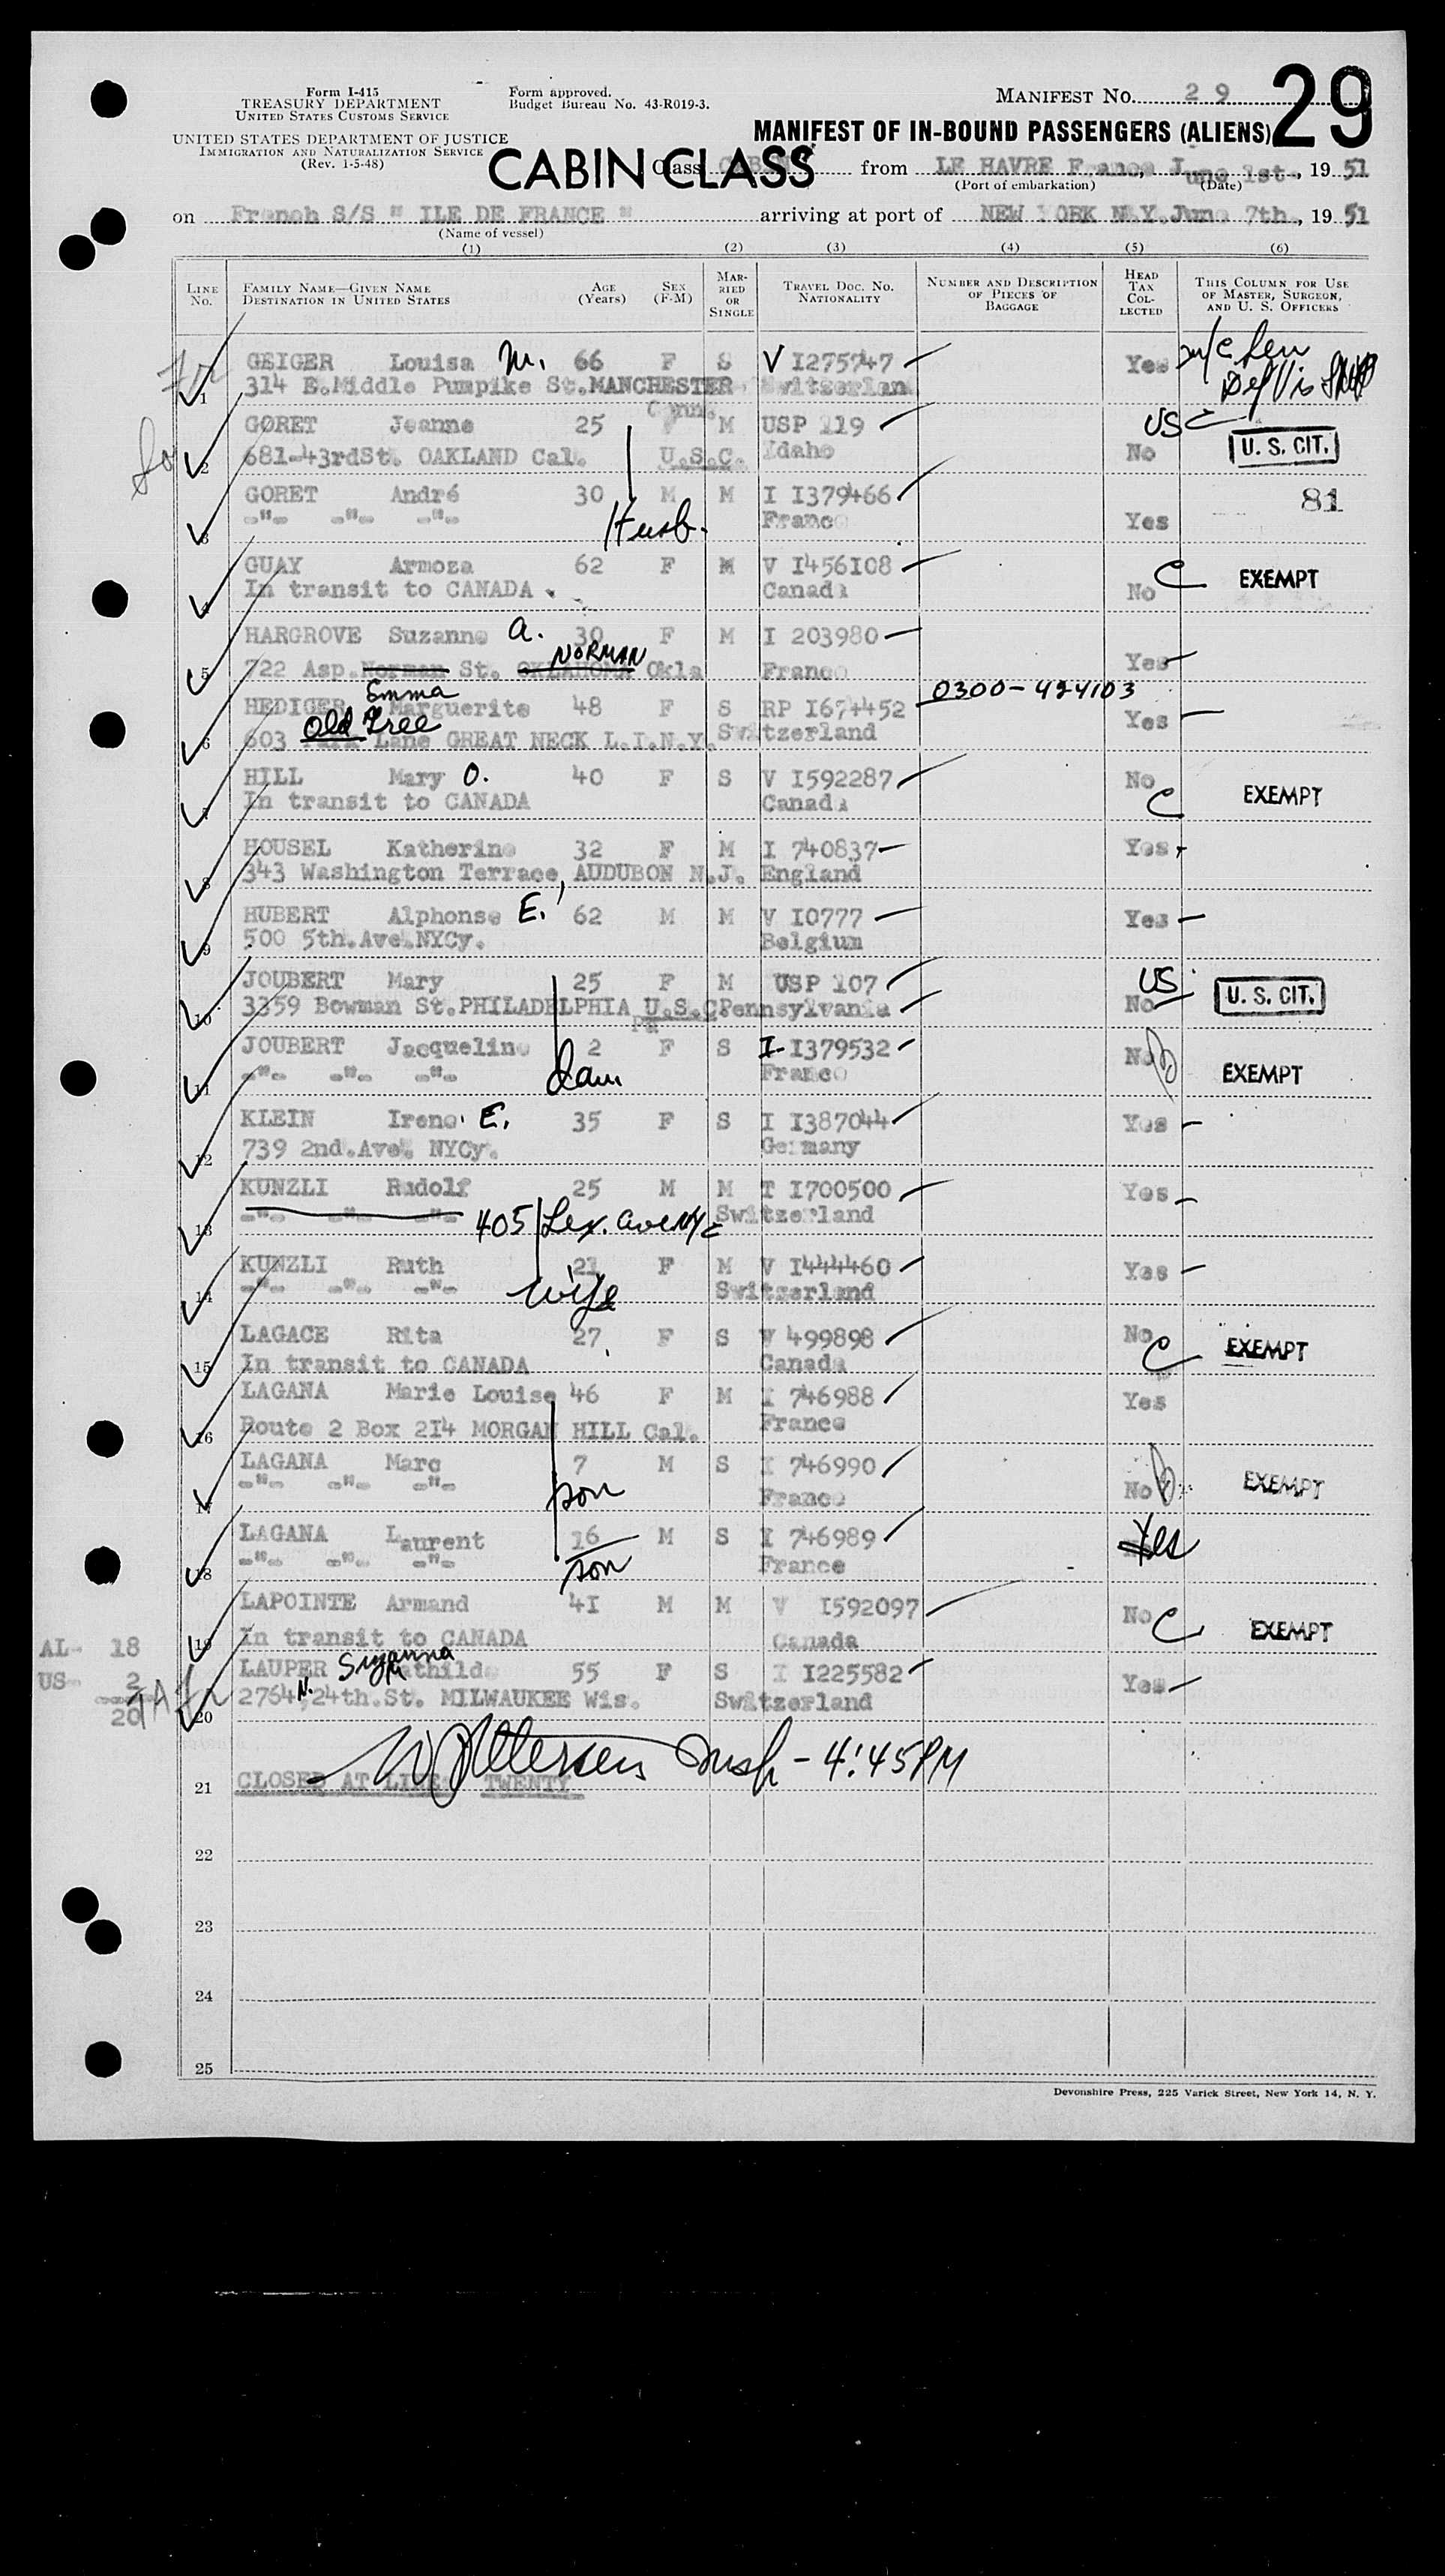 29
Form I-415
TREASURY DEPARTMENT
UNITED STATES CUSTOMS SERVICE
Form approved.
Budget Bureau No. 43-R019-3.
MANIFEST No. 29
UNITED STATES DEPARTMENT OF JUSTICE
IMMIGRATION AND NATURALIZATION SERVICE
(Rev. 1-5-48)
MANIFEST OF IN-BOUND PASSENGERS (ALIENS)
CABIN CLASS
Class CABIN from LE HAVRE France, June 1st-, 19 51
(Port of embarkation) (Date)
on French S/S " ILE DE FRANCE " arriving at port of NEW YORK N.Y. June 7th., 19 51
(Name of vessel)
(1) (2) (3) (4) (5) (6)
LINE No. FAMILY NAME—GIVEN NAME DESTINATION IN UNITED STATES AGE (Years) SEX (F-M) MARRIED OR SINGLE TRAVEL DOC. NO. NATIONALITY NUMBER AND DESCRIPTION OF PIECES OF BAGGAGE HEAD TAX COLLECTED THIS COLUMN FOR USE OF MASTER, SURGEON, AND U. S. OFFICERS
1 GEIGER Louisa M. 66 F S V I275747 Yes
314 E.Middle Pumpike St.MANCHESTER Conn. Switzerlan
2 GORET Jeanne 25 M USP 119 US U. S. CIT.
681-43rdSt. OAKLAND Cal. U.S.C. Idaho No
3 GORET André 30 M M I I379466 81
-"- -"- -"- Husb. France Yes
4 GUAY Armoza 62 F M V I456108 C EXEMPT
In transit to CANADA Canada No
5 HARGROVE Suzanne a. 30 F M I 203980
722 Asp. Norman St. OKLAHOMA NORMAN Okla France Yes
6 HEDIGER Emma Marguerite 48 F S RP I674452 0300-424103 Yes
603 Park Old Tree Lane GREAT NECK L.I.N.Y. Switzerland
7 HILL Mary O. 40 F S V I592287 No C EXEMPT
In transit to CANADA Canada
8 HOUSEL Katherine 32 F M I 740837 Yes
343 Washington Terrace, AUDUBON N.J. England
9 HUBERT Alphonse E. 62 M M V I0777 Yes
500 5th.Ave.NYCy. Belgium
10 JOUBERT Mary 25 F M USP 107 US U. S. CIT.
3359 Bowman St.PHILADELPHIA Pa U.S.C. Pennsylvania No
11 JOUBERT Jacqueline 2 F S I I379532 No EXEMPT
-"- -"- -"- dau France
12 KLEIN Irene E. 35 F S I I387044 Yes
739 2nd.Ave. NYCy. Germany
13 KUNZLI Rudolf 25 M M T I700500 Yes
-"- -"- -"- 405 Lex. ave NYC Switzerland
14 KUNZLI Ruth 21 F M V I444460 Yes
-"- -"- -"- wife Switzerland
15 LAGACE Rita 27 F S V 499898 No C EXEMPT
In transit to CANADA Canada
16 LAGANA Marie Louise 46 F M I 746988 Yes
Route 2 Box 214 MORGAN HILL Cal. France
17 LAGANA Marc 7 M S I 746990 No EXEMPT
-"- -"- -"- son France
18 LAGANA Laurent 16 M S I 746989 Yes
-"- -"- -"- son France
19 LAPOINTE Armand 41 M M V I592097 No C EXEMPT
In transit to CANADA Canada
20 LAUPER Suzanna Mathilde 55 F S I I225582 Yes
2764 N. 24th.St. MILWAUKEE Wis. Switzerland
AL- 18
US- 2
20
21 CLOSED AT LINE TWENTY
Insp - 4:45PM
22
23
24
25
Devonshire Press, 225 Varick Street, New York 14, N. Y.